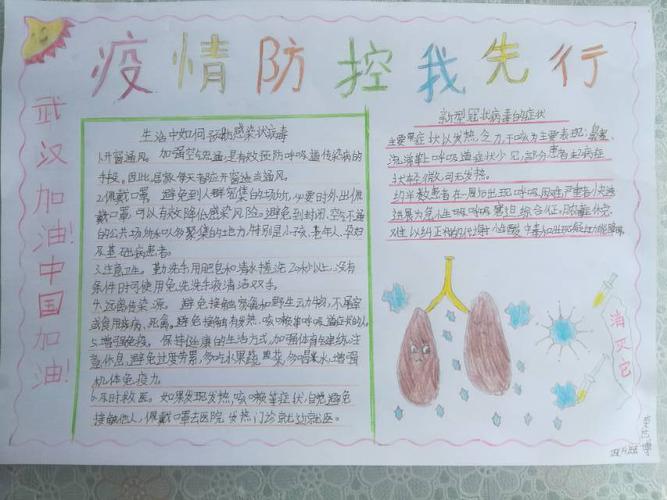 疫情防控我先行
武汉加油!中国加油!
生活中如何预防感染状病毒
1.开窗通风。加强空气流通,是有效预防呼吸道传染病的
手段,因此,居家每天都应开窗适当通风。
2.佩戴口罩。避免到人群密集的场所,必要时外出佩
戴口罩,可以有效降低感染风险。避免到封闭、空气不通
的公共场所和人多聚集的地方,特别是小孩、老年人、孕妇
及基础病患者。
3.注意卫生。勤洗手用肥皂和清水搓洗20秒以上,没有
条件时可使用免洗洗手液清洁双手。
4.远离传染源。避免接触禽畜和野生动物,不屠宰
或食用疾病、死禽。避免接触有发热、咳嗽等呼吸道症状的人。
5.增强免疫。保持健康的生活方式,加强体育锻炼,注
意休息,避免过度劳累,多吃水果蔬菜,多喝温水,增强
机体免疫力。
6.及时救医。如果发现发热、咳嗽等症状,自觉避免
接触他人,佩戴口罩去医院发热门诊就近就医。
新型冠状病毒的症状
主要症状以发热、乏力、干咳为主要表现;鼻塞
流涕等上呼吸道症状少见;部分患者主病症
状轻微,可无发热。
约半数患者在一周后出现呼吸困难,严重者快速
进展为急性呼吸窘迫综合征,脓毒休克,
难以纠正的代谢性酸中毒和出凝血功能障碍
消灭它